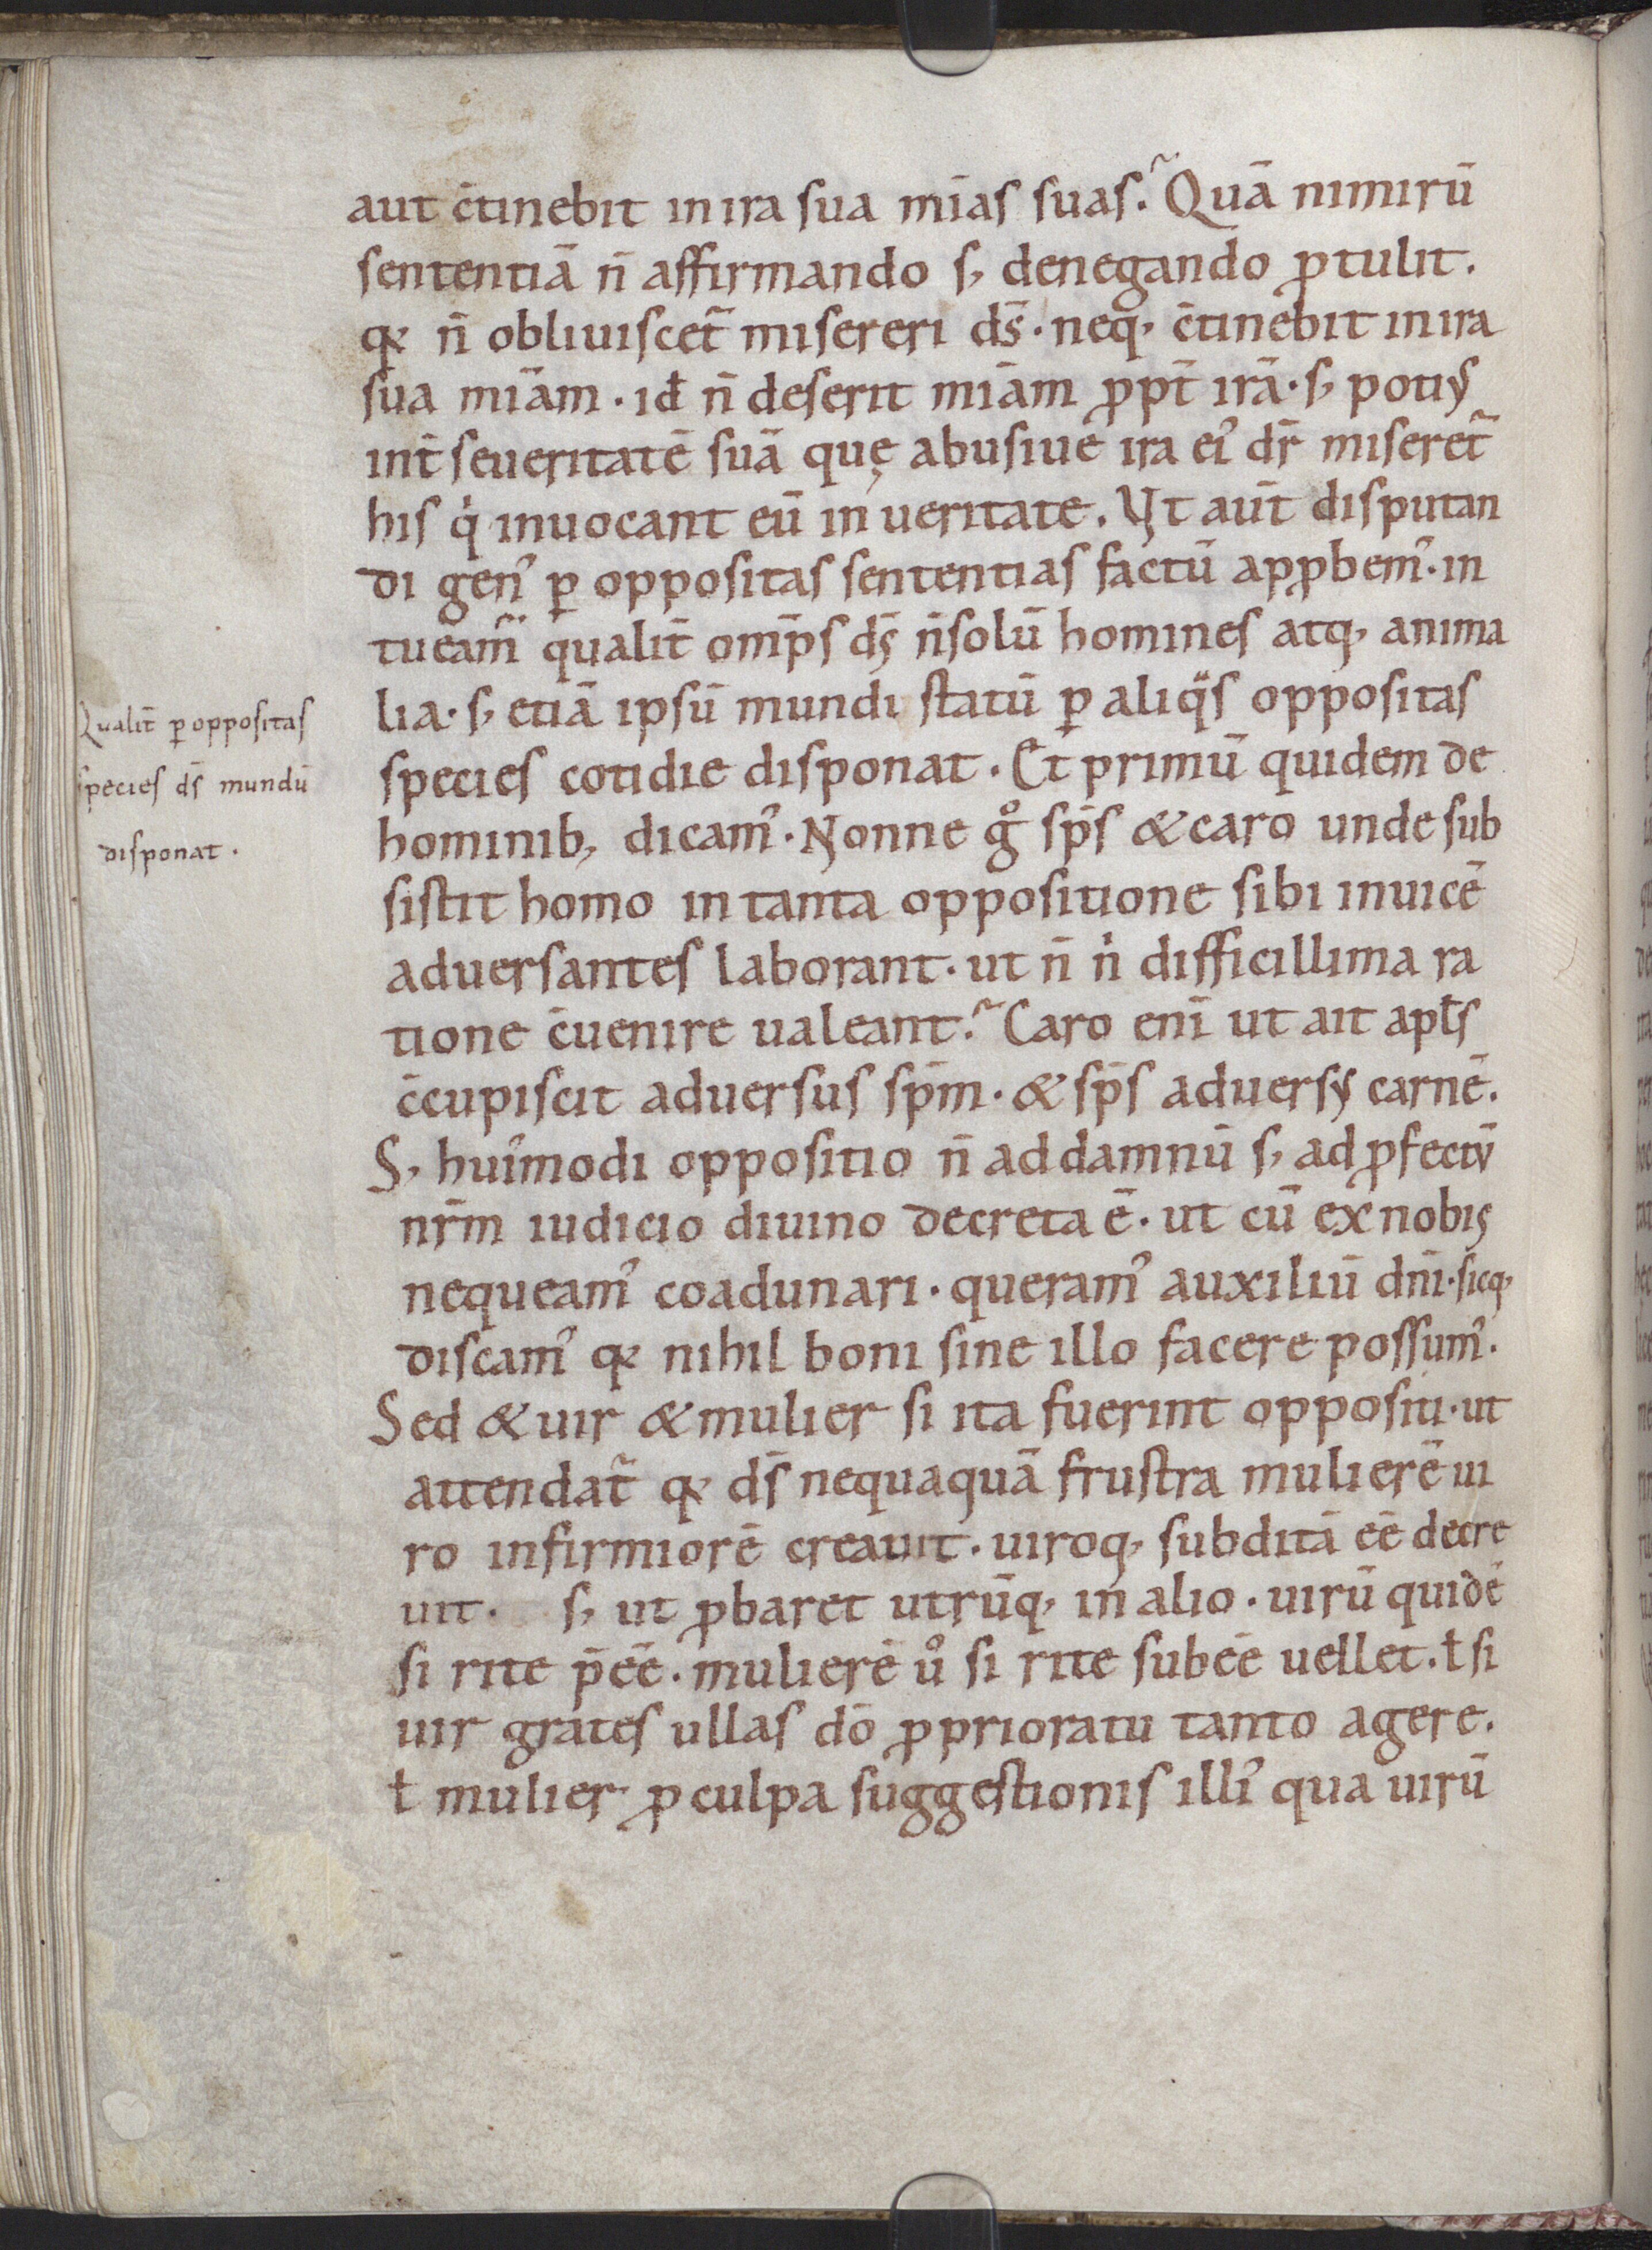 aut c̄tinebit in ira sua mīas suas. Quā nimirū
sententiā n̄ affirmando s, denegando ꝓtulit.
qđ n̄ obliuiscet̃ misereri ds̄. neq, c̄tinebit in ira
sua mīam. id̄ n̄ deserit mīam ꝓpt̄ irā. s, potiꝰ
int̄ seueritatē suā quę abusiue ira ei᾽ dr̄ miseret̃
his q̇ inuocant eū in ueritate. Vt aūt disputan
di gen᾽ ꝑ oppositas sententias factū apꝓbem᾽. in
tueam᾽ qualit̄ omp̄s ds̄ n̄ solū homines atq, anima
lia. s, etiā ipsū mundi statū ꝑ aliq̈s oppositas
Qualit̄ ꝑ oppositas
species ds̄ mundū
disponat.
species cotidie disponat. Et primū quidem de
hominib, dicam᾽. Nonne g̊ sp̄s & caro unde sub
sistit homo in tanta oppositione sibi inuicē
aduersantes laborant. ut n̄ ṅ difficillima ra
tione c̄uenire ualeant. Caro eni̅ ut ait apl̄s
c̄cupiscit aduersus sp̄m. & sp̄s aduersꝰ carnē.
S, hui᾽modi oppositio n̄ ad damnū s, ad ꝓfectū
nr̄m iudicio diuino decreta ē. ut cū ex nobis
nequeam᾽ coadunari. queram᾽ auxiliū dn̄i. sicq,
discam᾽ qđ nihil boni sine illo facere possum᾽.
Sed & uir & mulier si ita fuerint oppositi. ut
attendat̃ qđ ds̄ nequaquā frustra mulierē ui
ro infirmiorē creauit. uiroq, subditā eē decre
uit. s, ut ꝓbaret utrūq, in alio. uirū quidē
si rite p̄eē. mulierē u᾽̊ si rite subeē uellet. ł si
uir grates ullas dō ꝓ prioratu tanto agere.
ł mulier ꝓ culpa suggestionis illi᾽ qua uirū